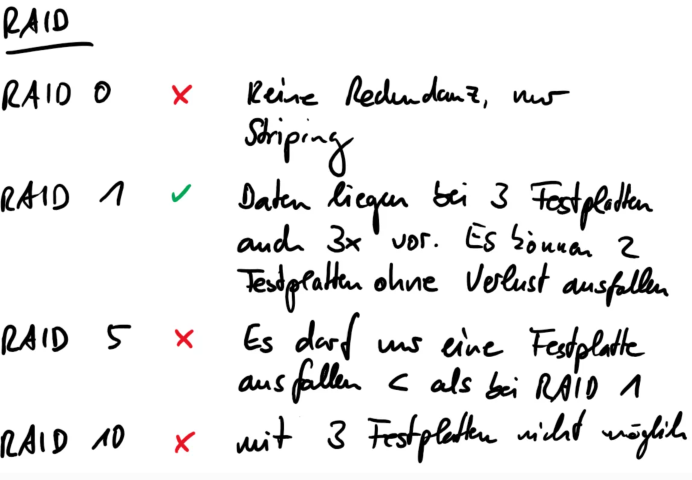 RAID
RAID 0 ✗ Keine Redundanz, nur
Striping
RAID 1 ✓ Daten liegen bei 3 Festplatten
auch 3x vor. Es können 2
Festplatten ohne Verlust ausfallen
RAID 5 ✗ Es darf nur eine Festplatte
ausfallen < als bei RAID 1
RAID 10 ✗ mit 3 Festplatten nicht möglich